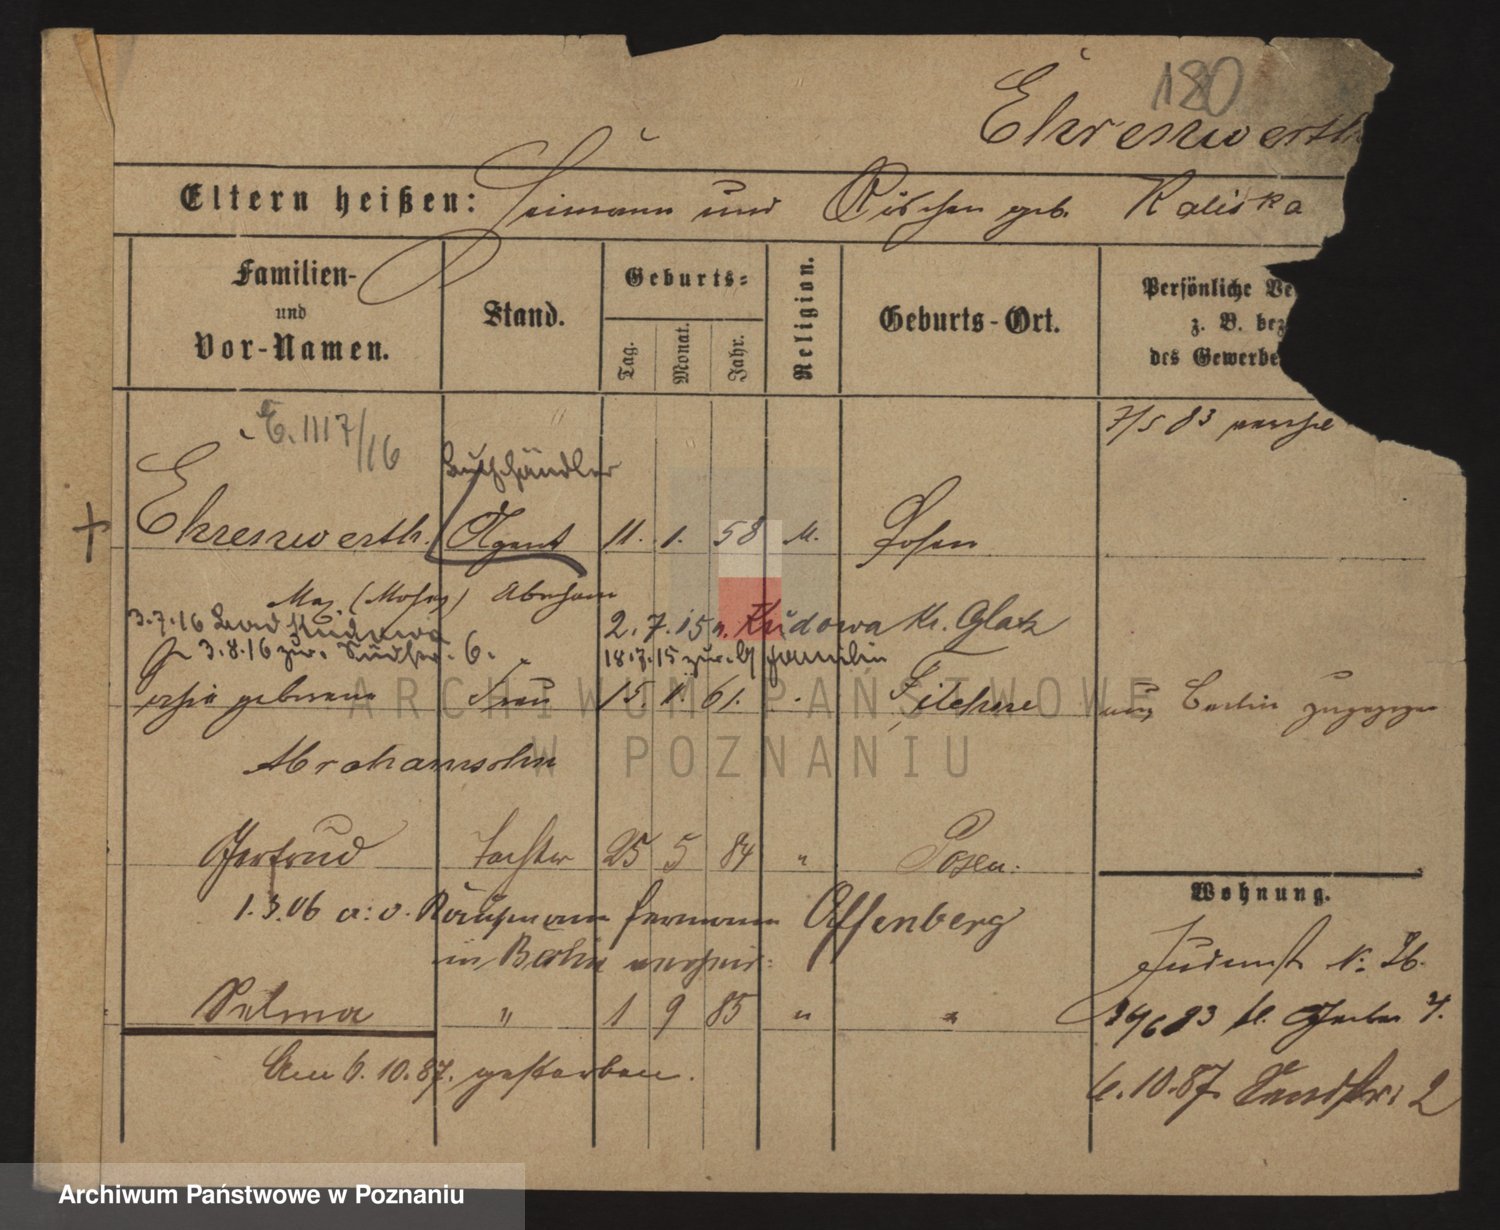 180
Ehrenwerth
Eltern heißen: Heimann und Röschen geb. Kaliska
Familien-
und
Vor-Namen.
Stand.
Geburts-
Tag.
Monat.
Jahr.
Religion.
Geburts-Ort.
Persönliche Ve
z. B. bez
des Gewerbe
E. 1117/16
7/5 83
Buchhändler
Ehrenwerth. Agent 11. 1. 58 M. Posen
Max (Moses) Abraham
3.7.16 Bad Kudowa 2.7.15 n. Kudowa Kr. Glatz
3.8.16 zur. Südstr. 6. 18.7.15 zur. Familie
geborene Frau 15. 1. 61. Filehne aus Berlin zugezogen
Abrahamsohn
Gertrud Tochter 25 5 84 " Posen.
Wohnung.
1.3.06 a: d. Kaufmann Hermann Offenberg
in Berlin
Judenst N: 26.
Selma " 1 9 85 " "
24/6 83 kl. Gerber 4.
Am 6.10.87. gestorben.
6.10.87 Sandstr: 2
ARCHIWUM PAŃSTWOWE
W POZNANIU
Archiwum Państwowe w Poznaniu